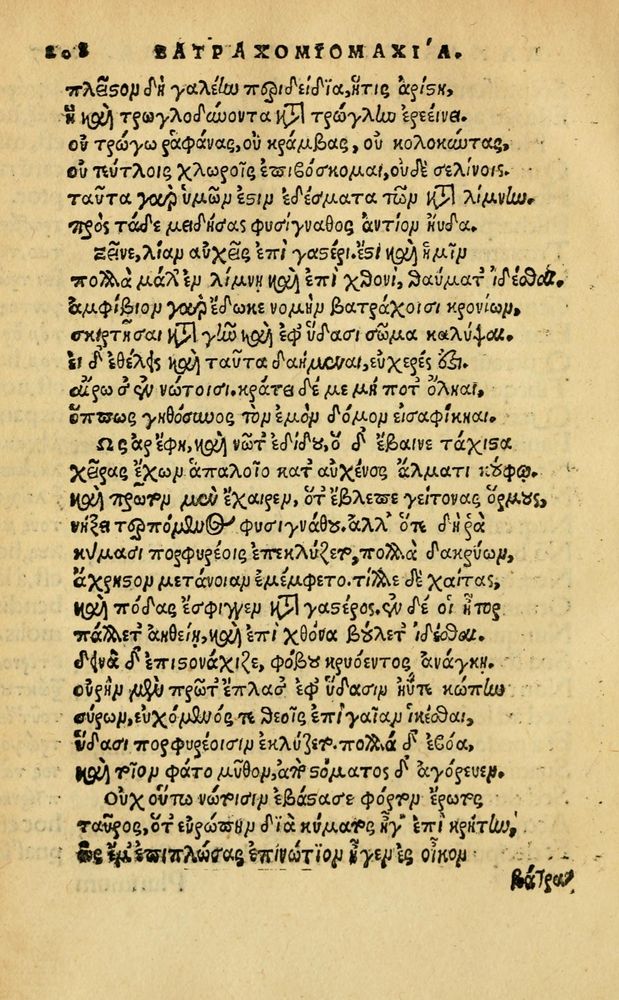 208 ΒΑΤΡΑΧΟΜΙΟΜΑΧΙ´Α.
πλεῖστον δὴ γαλέην περιδείδια, ἥτις ἀρίστη,
ἣ καὶ τρωγλοδύνοντα κατὰ τρώγλην ἐρεείνει.
οὐ τρώγω ῥαφάνας, οὐ κράμβας, οὐ κολοκώτας,
οὐ πεύτλοις χλωροῖς ἐπιβόσκομαι, οὐδὲ σελίνοις.
ταῦτα γὰρ ὑμῶν ἐστὶν ἐδέσματα τῶν κατὰ λίμνην.
πρὸς τάδε μειδήσας φυσίγναθος ἀντίον ηὔδα.
ξεῖνε, λίαν αὐχεῖς ἐπὶ γαστέρι. ἔστι καὶ ἡμῖν
πολλὰ μάλ' ἐν λίμνῃ καὶ ἐπὶ χθονὶ, θαύματ' ἰδέσθαι.
ἀμφίβιον γὰρ ἔδωκε νομὴν βατράχοισι κρονίων,
σκιρτῆσαι κατὰ γῆν καὶ ἐφ' ὕδασι σῶμα καλύψαι.
εἰ δ' ἐθέλεις καὶ ταῦτα δαήμεναι, εὐχερές ἐστι.
αἴρω σ' ἐν νώτοισι. κράτει δέ με μή ποτ' ὄληαι,
ὅππως γηθόσυνος τὸν ἐμὸν δόμον εἰσαφίκηαι.
Ὣς ἄρ' ἔφη, καὶ νῶτ' ἐδίδου, ὁ δ' ἔβαινε τάχιστα
χεῖρας ἔχων ἁπαλοῖο κατ' αὐχένος ἅλματι κούφῳ.
καὶ πρῶτον μὲν ἔχαιρεν, ὅτ' ἔβλεπε γείτονας ὅρμους,
νήξει τερπόμενος φυσιγνάθου. ἀλλ' ὅτε δή ῥα
κύμασι πορφυρέοις ἐπεκλύζετο, πολλὰ δακρύων,
ἄχρηστον μετάνοιαν ἐμέμφετο. τίλλε δὲ χαίτας,
καὶ πόδας ἔσφιγγεν κατὰ γαστέρος. ἐν δέ οἱ ἦτορ
πάλλετ' ἀηθείῃ, καὶ ἐπὶ χθόνα βούλετ' ἰδέσθαι.
δεινὰ δ' ἐπιστονάχιζε, φόβου κρυόεντος ἀνάγκῃ.
οὐρὴν μὲν πρῶτ' ἔπλασ' ἐφ' ὕδασιν ἠΰτε κώπην
σύρων, εὐχόμενός τε θεοῖς ἐπὶ γαῖαν ἱκέσθαι,
ὕδασι πορφυρέοισιν ἐκλύζετο. πολλὰ δ' ἐβόα,
καὶ τοῖον φάτο μῦθον, ἀπὸ στόματος δ' ἀγόρευεν.
Οὐχ οὕτω νώτοισιν ἐβάστασε φόρτον ἔρωτος
ταῦρος, ὅτ' εὐρώπην διὰ κύματος ἦγ' ἐπὶ κρήτην,
ὡς ἔμ' ἐπιπλώσας ἐπινώτιον ἦγεν ἐς οἶκον
βάτρα-